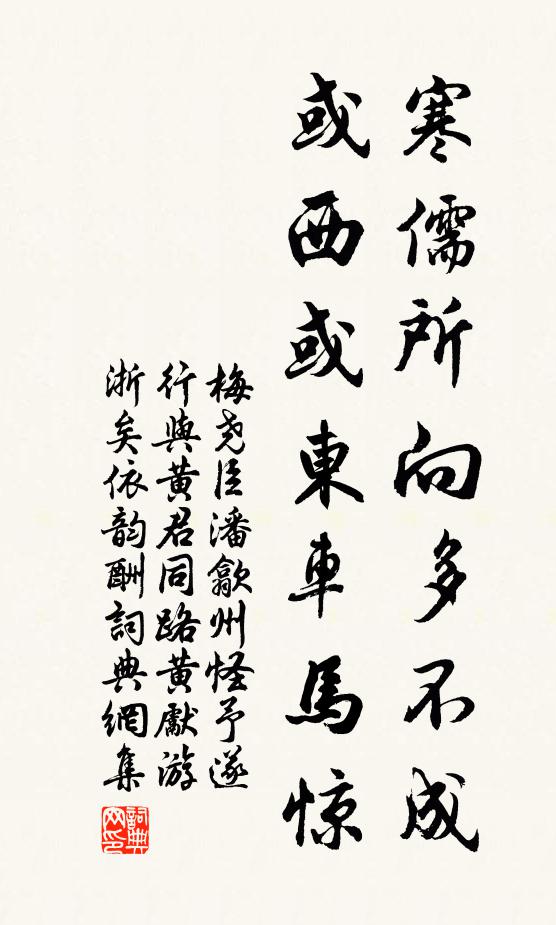 寒儒所向多不成
或西或東車馬惊
梅尧臣潘歙州怪予遂
行與黄君同路黄獻游
浙矣依韵酬詞典網集
詞典網印